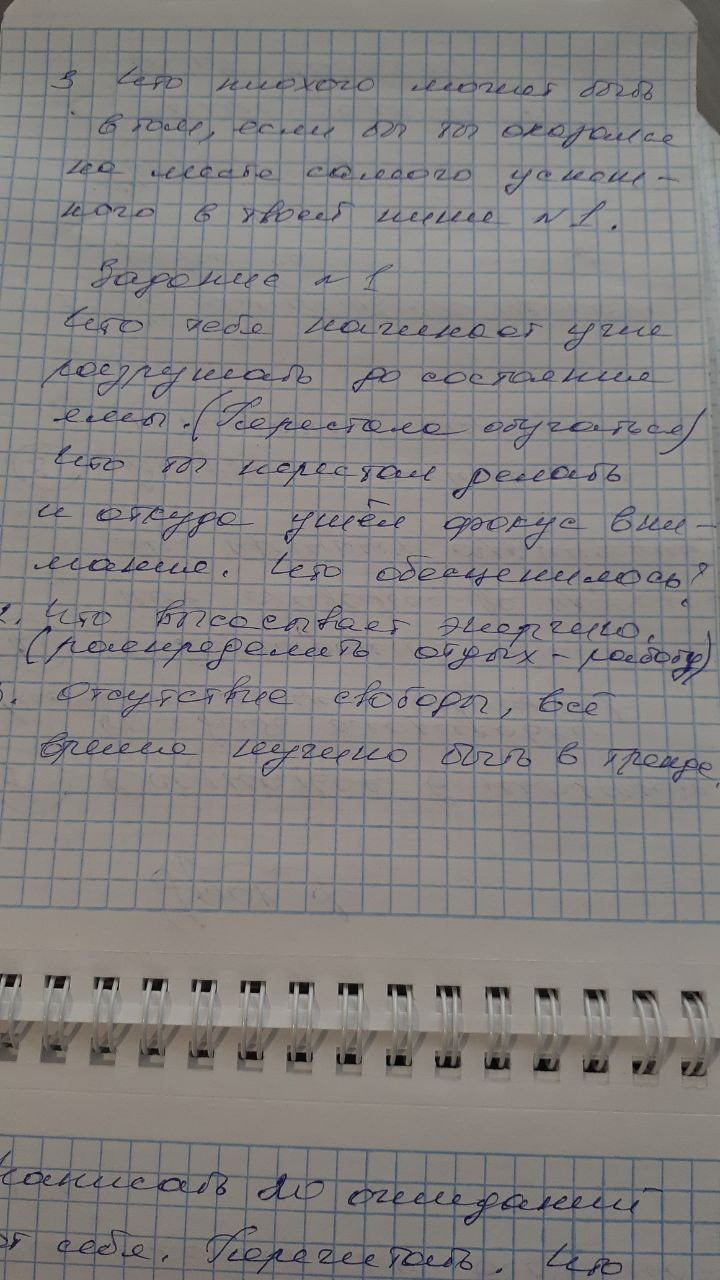 3 Что плохого может быть
в том, если бы ты оказался
на месте самого успеш-
ного в твоей нише №1.
Задание №1
Что тебя начинает
разрушать до состояния
ямы. (Перестала обучаться)
Что ты перестал делать
и откуда ушёл фокус вни-
мания. Что обесценилось?
2. Что высасывает энергию.
(распределить отдых - работу)
3. Отсутствие свободы, всё
время нужно быть в тренде.
Написать 20 ожиданий
от себя. Перечитать. Что